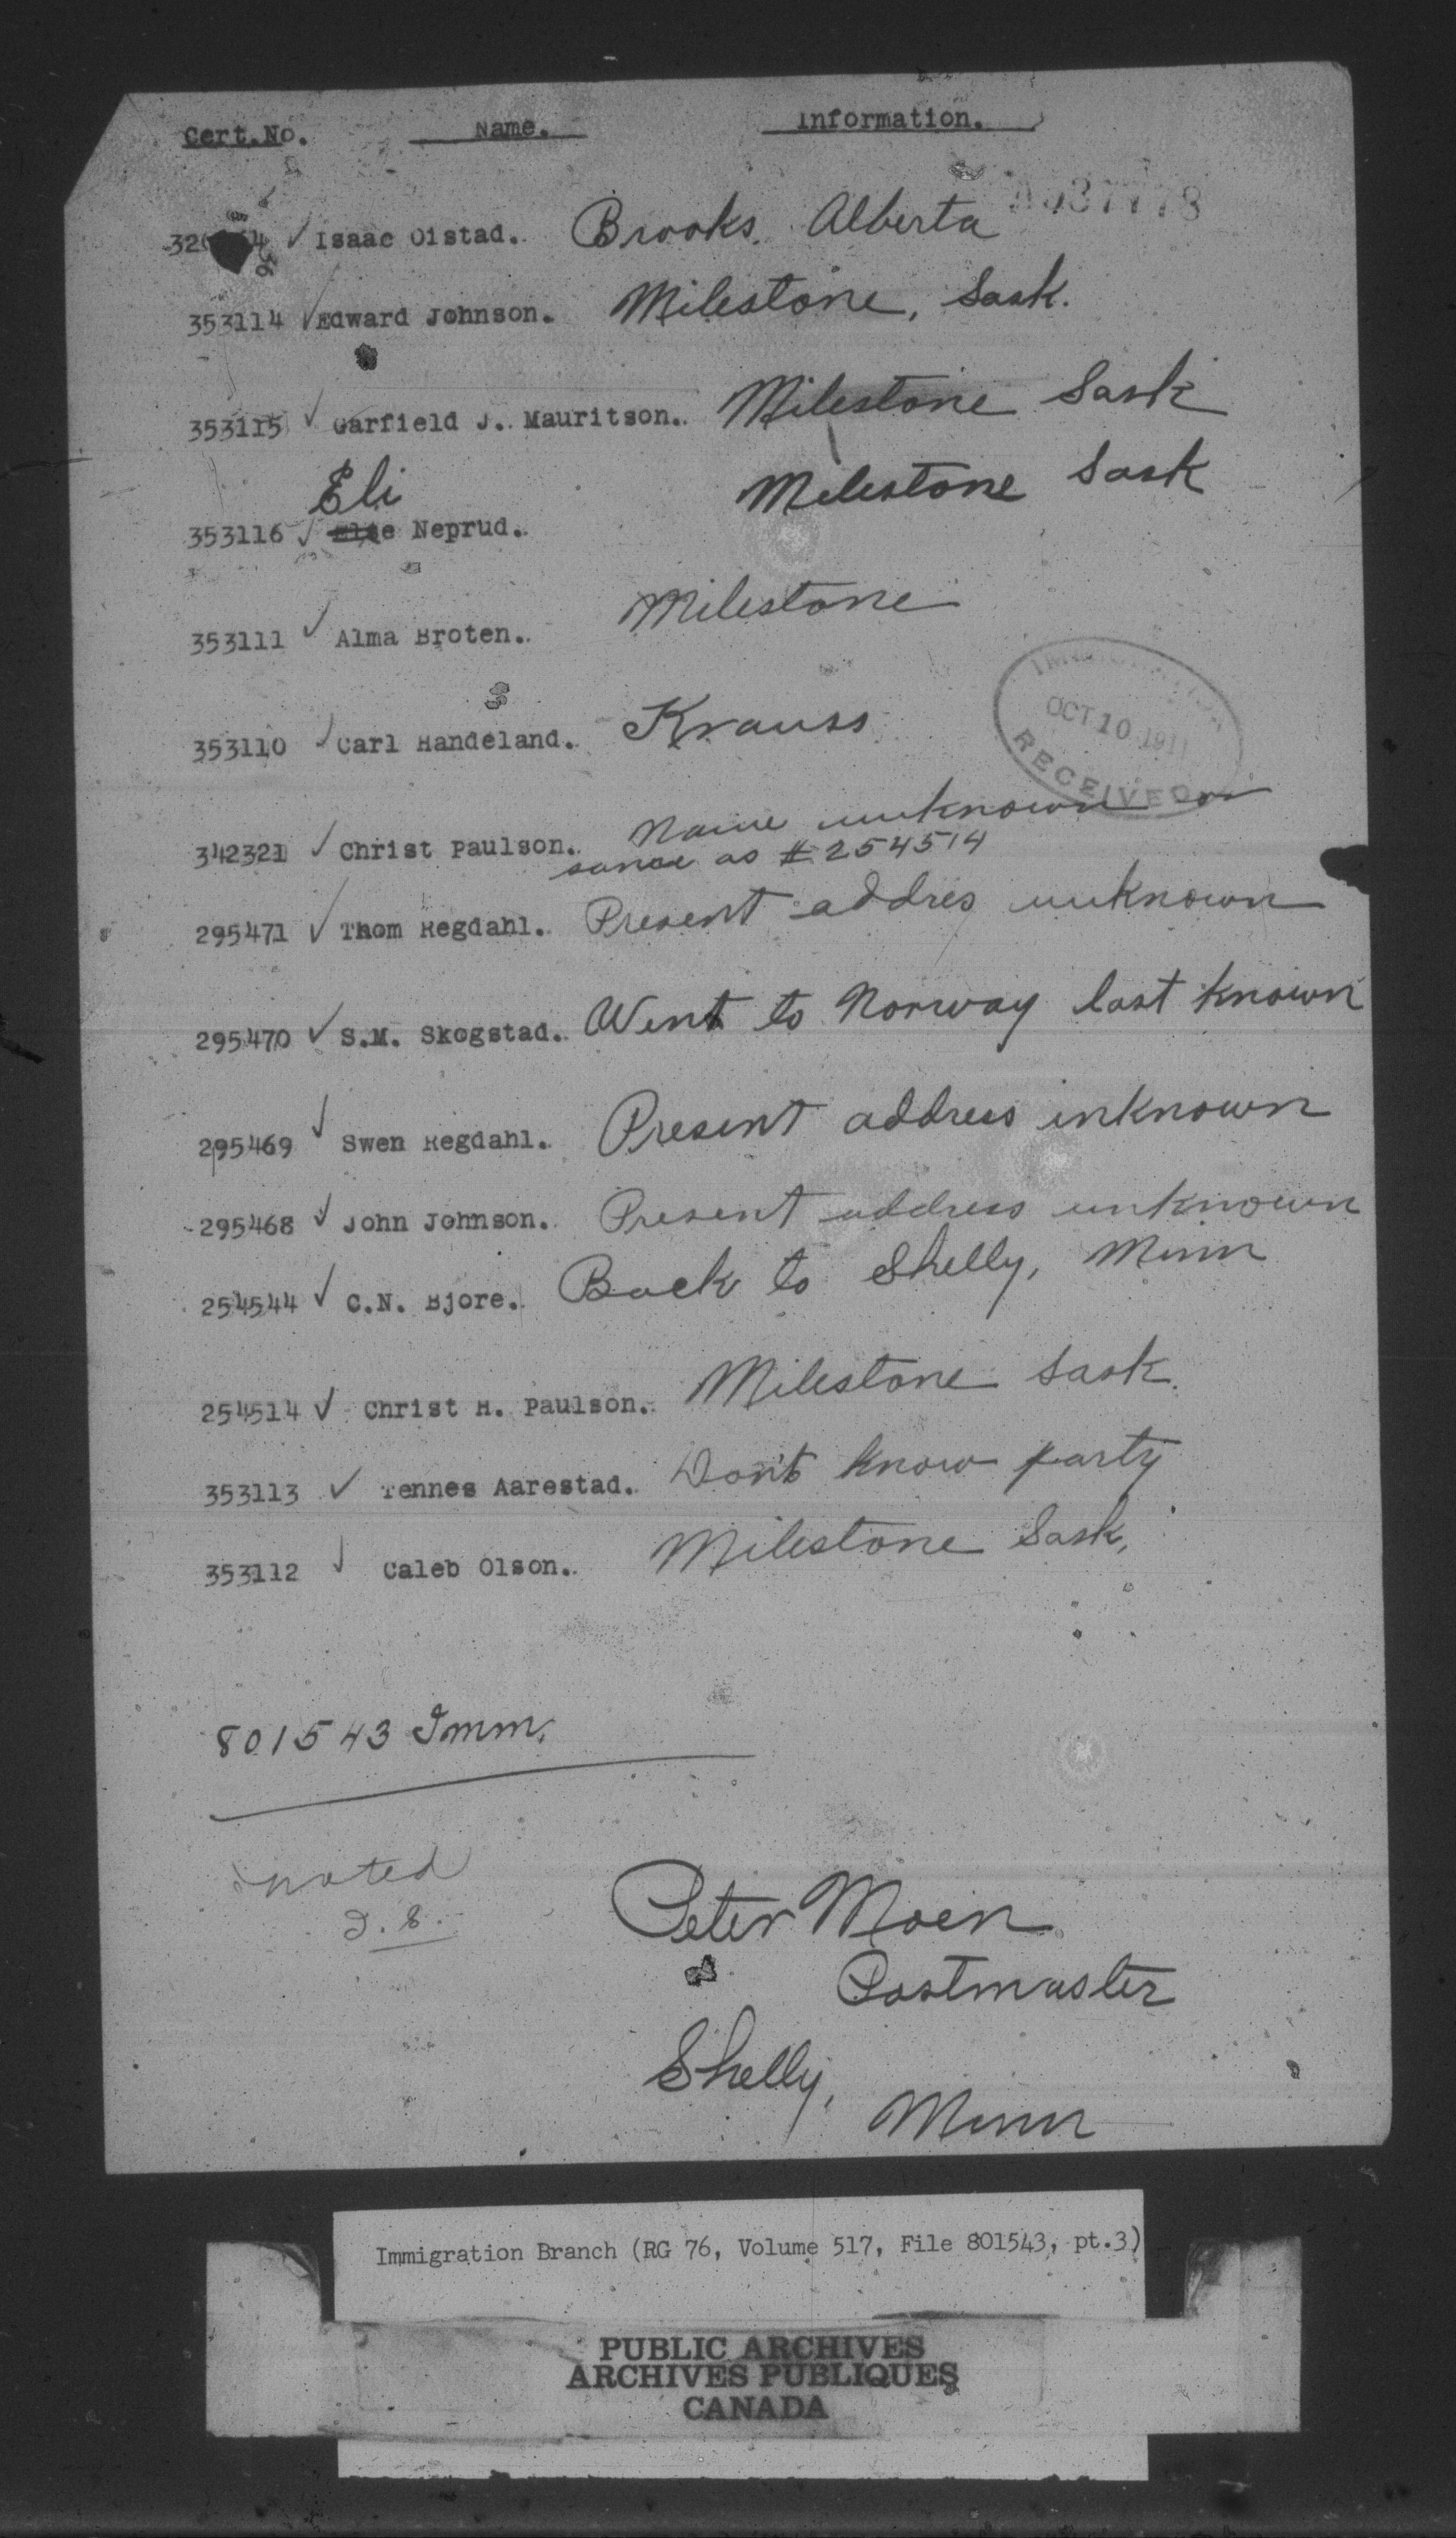 Cert.No. Name. Information.
Isaac Oistad. Brooks. Alberta
353114 ✓ Edward Johnson. Milestone, Sask.
353115 ✓ Garfield J. Mauritson. Milestone Sask
Eli Milestone Sask
353116 ✓ Neprud.
353111 ✓ Alma Broten. Milestone
353110 ✓ Carl Handeland. Krauss
IMMIGRATION
OCT 10 1911
RECEIVED
342321 ✓ Christ Paulson. Name unknown or
same as # 254514
295471 ✓ Thom Regdahl. Present addres unknown
295470 ✓ S.M. Skogstad. Went to Norway last known
295469 ✓ Swen Regdahl. Present address inknown
295468 ✓ John Johnson. Present address unknown
254544 ✓ C.N. Bjore. Back to Shelly, Minn
254514 ✓ Christ H. Paulson. Milestone Sask.
353113 ✓ Tennes Aarestad. Don't know party
353112 ✓ Caleb Olson. Milestone Sask,
801543 Imm.
noted
Peter Moen
Postmaster
Shelly,
Minn
Immigration Branch (RG 76, Volume 517, File 801543, pt.3)
PUBLIC ARCHIVES
ARCHIVES PUBLIQUES
CANADA